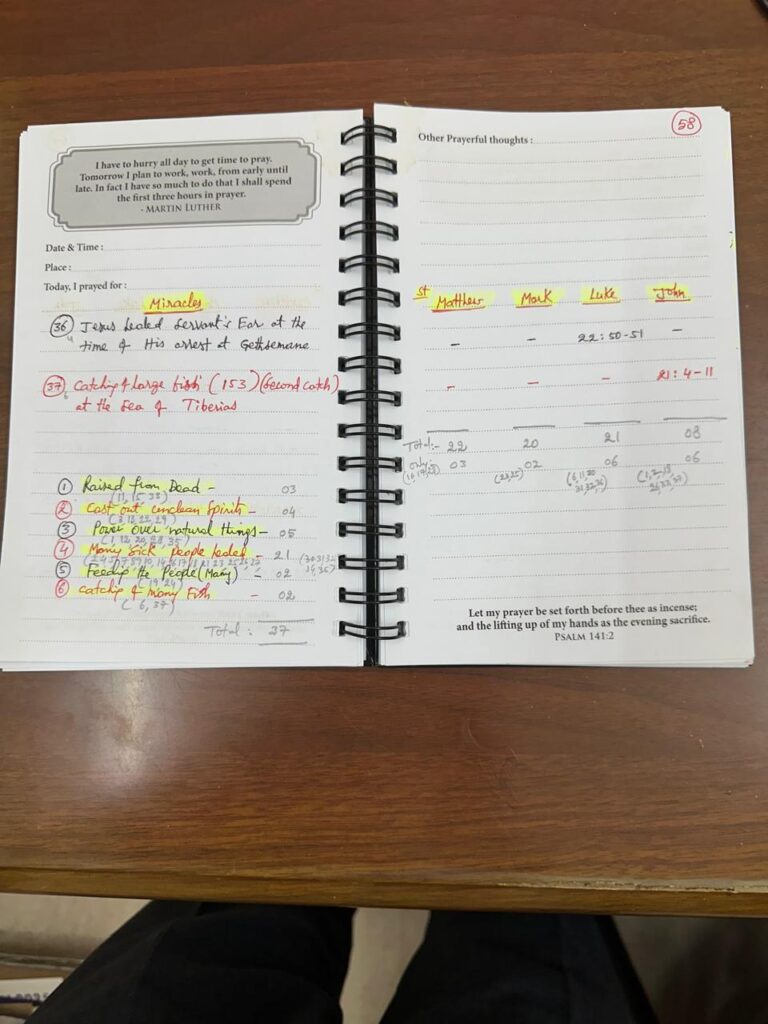 I have to hurry all day to get time to pray.
Tomorrow I plan to work, work, from early until
late. In fact I have so much to do that I shall spend
the first three hours in prayer.
- MARTIN LUTHER
Date & Time :
Place :
Today, I prayed for :
Miracles
36 Jesus healed servant's Ear at the
time of His arrest at Gethsemane
37 Catching of large fish (153) (second catch)
at the sea of Tiberias
1 Raised from Dead - 03
(11, 15, 33)
2 Cast out unclean spirits - 04
3 Power over natural things - 05
(1, 12, 20, 28, 35)
4 Many sick people healed - 21
5 Feeding the People (Many) - 02
(19, 24)
6 catching of many Fish - 02
(6, 37)
Total : 37
58
Other Prayerful thoughts :
St Matthew Mark Luke John
- - 22:50-51 -
- - - 21:4-11
Total:- 22 20 21 08
only 03 02 06 06
Let my prayer be set forth before thee as incense;
and the lifting up of my hands as the evening sacrifice.
PSALM 141:2